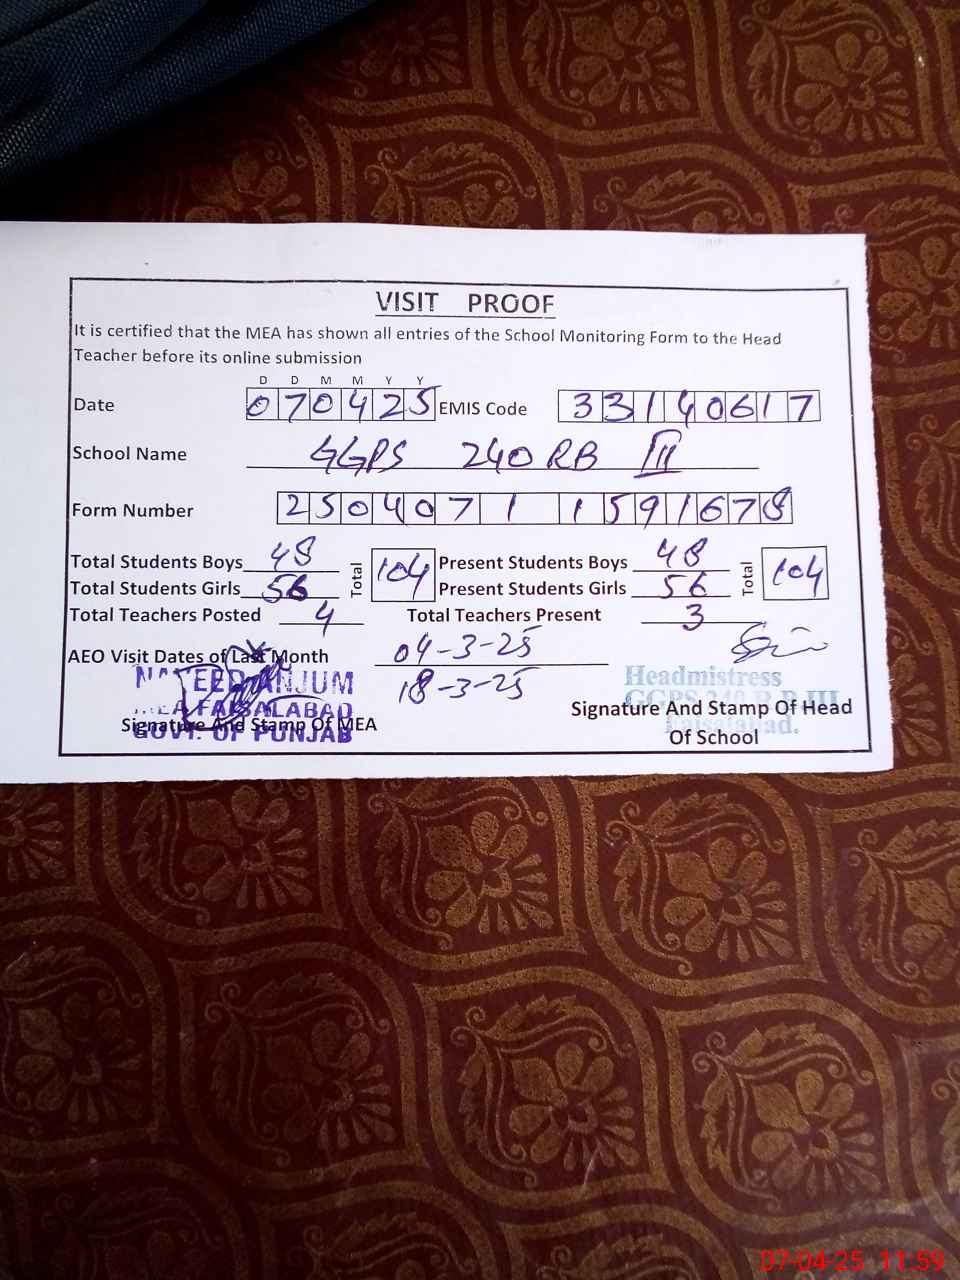 VISIT PROOF
It is certified that the MEA has shown all entries of the School Monitoring Form to the Head
Teacher before its online submission
D D M M Y Y
Date 070425 EMIS Code 33140617
School Name GGPS 240 RB III
Form Number 2504071 1591678
Total Students Boys 48 Total 104 Present Students Boys 48 Total 104
Total Students Girls 56 Present Students Girls 56
Total Teachers Posted 4 Total Teachers Present 3
AEO Visit Dates of Last Month 04-3-25
18-3-25
ANJUM
MEA FAISALABAD
GOVT. OF PUNJAB
Signature And Stamp Of MEA
Headmistress
GGPS 240 R.B III
Faisalabad.
Signature And Stamp Of Head
Of School
07-04-25 11:59